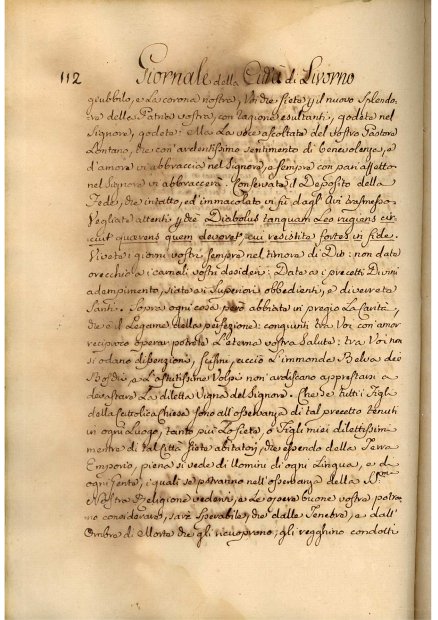 112 Giornale della Città di Livorno
giubbilo, e La corona nostra, Voi che siete p il nuovo Splendo,
re della Patria vostra, con ragione esultanti, godete nel
Signore, godete: Ma La voce ascoltate del vostro Pastore
Lontano, che con ardentissimo sentimento di benevolenza, e
d'amore vi abbraccia nel Signore, e sempre con pari affetto
nel Signore vi abbraccerà. Conservate il Deposito della
Fede, che intatto, ed immacolato vi fù dagl' Avi trasmesso.
Vegliate attenti, che Diabolus tanquam Leo rugiens cir,
cuit quærens quem devoret, cui resistite fortes in fide.
Vivete i giorni vostri sempre nel timore di Dio: non date
orecchio a i carnali vostri desideri: Date a i precetti Divini
adempimento, siate a i Superiori obbedienti, e di vero
Santi. Sopra ogni cosa però abbiate in pregio La Carità,
che è il Legame della perfezione: congiunti tra Voi con amor
reciproco operar potrete L'eterna vostra Salute: tra Voi non
si odano dissenzioni, scismi, acciò L'immonde Belve dei
Boschi, e L'astutissime Volpi non'ardiscano appressarsi a
devastare La diletta Vigna del Signore. Che se tutti i Figli
della Cattolica Chiesa sono all'osservanza di tal precetto tenuti
in ogni Luogo, tanto più Lo siete, o Figli miei dilettissimi
mentre di tal Città siete abitatori, che essendo della Terra
Emporio, piena si vede di Uomini di ogni Lingua, e di
ogni gente, i quali se potranno nell'osservanza della
Nostra Religione vedervi, e Le opere buone vostre potran,
no considerare, sarà sperabile, che dalle Tenebre, e dall'
Ombre di Morte che gli ricuoprono, gli vegghino condotti